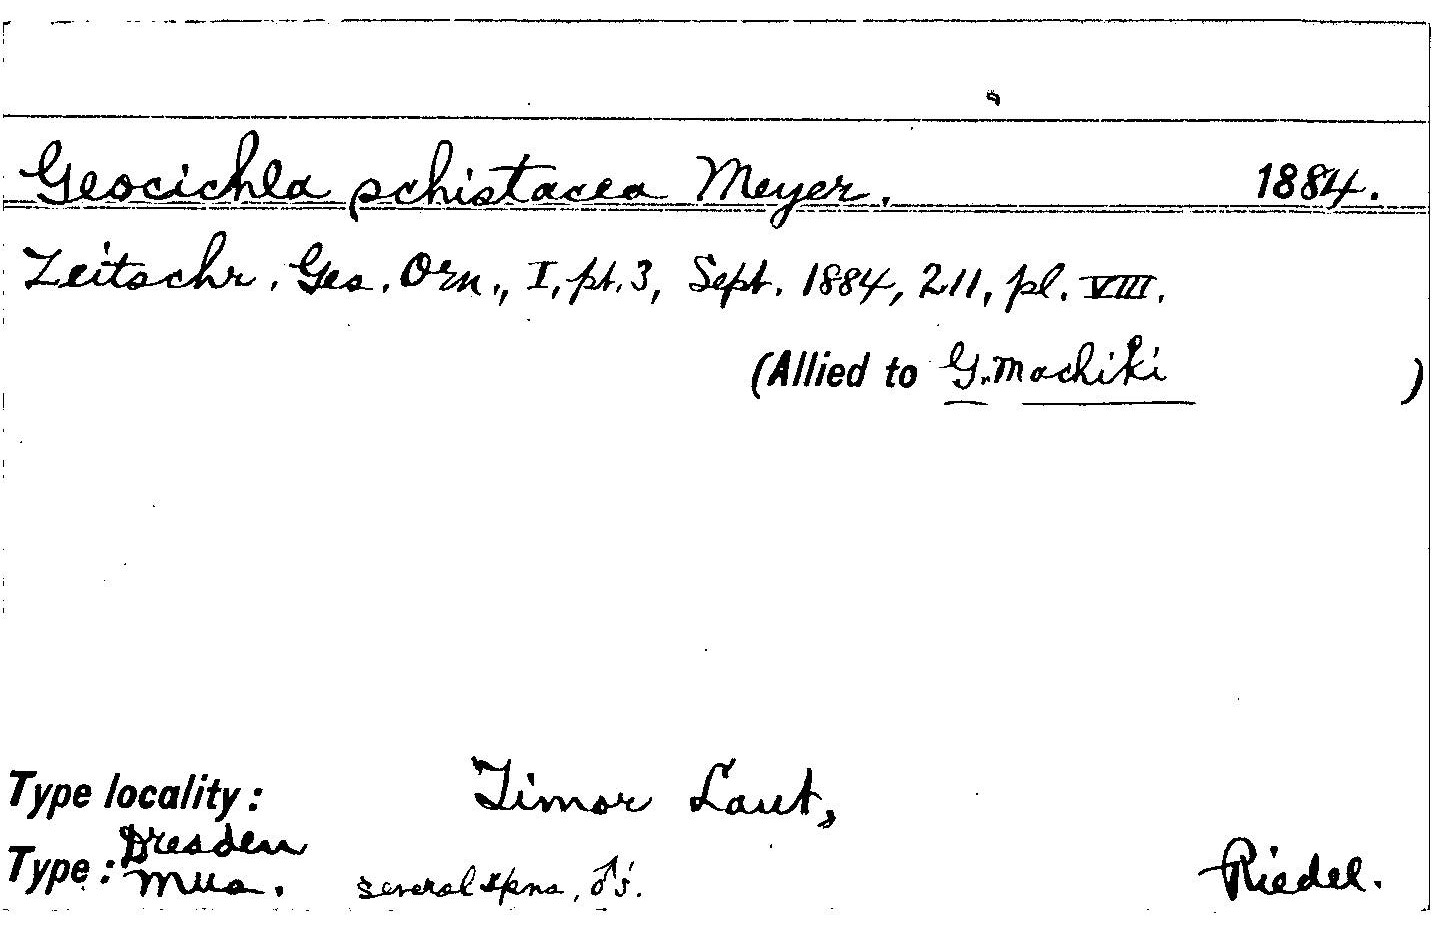 Geocichla schistacea Meyer. 1884.
Zeitschr. Ges. Orn., I, pt. 3, Sept. 1884, 211, pl. VIII.
(Allied to G. machiki )
Type locality: Timor Laut,
Type: Dresden
Mus. several spns, ♂'s. Riedel.